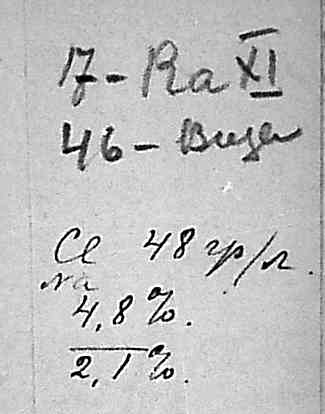 17 - Ra XI
46 -
Cl 48 гр/л.
Na
4,8%.
2,1%.